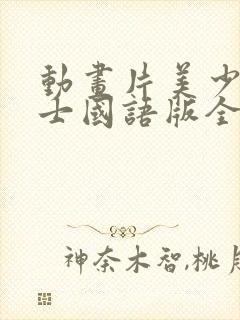 動畫片美少
士國語版全
神奈木智,桃月